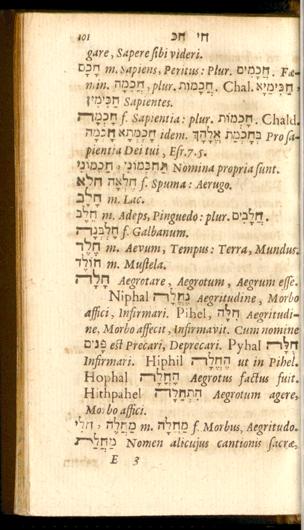 101 חי חכ
gare, Sapere sibi videri.
חָכָם m. Sapiens, Peritus: Plur. חֲכָמִים. Fæ-
min. חֲכָמָה, plur. חֲכָמוֹת. Chal. חַכִּימִיא,
חַכִּימִין Sapientes.
חָכְמָה f. Sapientia: plur. חָכְמוֹת. Chald.
חָכְמָה חָכְמְתָא idem. בְּחָכְמַת אֱלָהָךְ Pro sa-
pientia Dei tui, Esr. 7.5.
תַּחְכְּמוֹנִי, חַכְמוֹנִי Nomina propria sunt.
חלא חֶלְאָה f. Spuma: Aerugo.
חָלָב m. Lac.
חֵלֶב m. Adeps, Pinguedo: plur. חֲלָבִים.
חֶלְבְּנָה f. Galbanum.
חֶלֶד m. Aevum, Tempus: Terra, Mundus.
חוֹלֶד m. Mustela.
חָלָה Aegrotare, Aegrotum, Aegrum esse.
Niphal נֶחֱלָה Aegritudine, Morbo
affici, Infirmari. Pihel, חִלָּה Aegritudi-
ne, Morbo affecit, Infirmavit. Cum nomine
פָּנִים est Precari, Deprecari. Pyhal חֻלָּה
Infirmari. Hiphil הֶחֱלָה ut in Pihel.
Hophal הָחֳלָה Aegrotus factus fuit.
Hithpahel הִתְחַלָּה Aegrotum agere,
Morbo affici.
חֳלִי, מַחֲלֶה m. מַחֲלָה f. Morbus, Aegritudo.
מַחֲלַת Nomen alicujus cantionis sacræ,
E 3